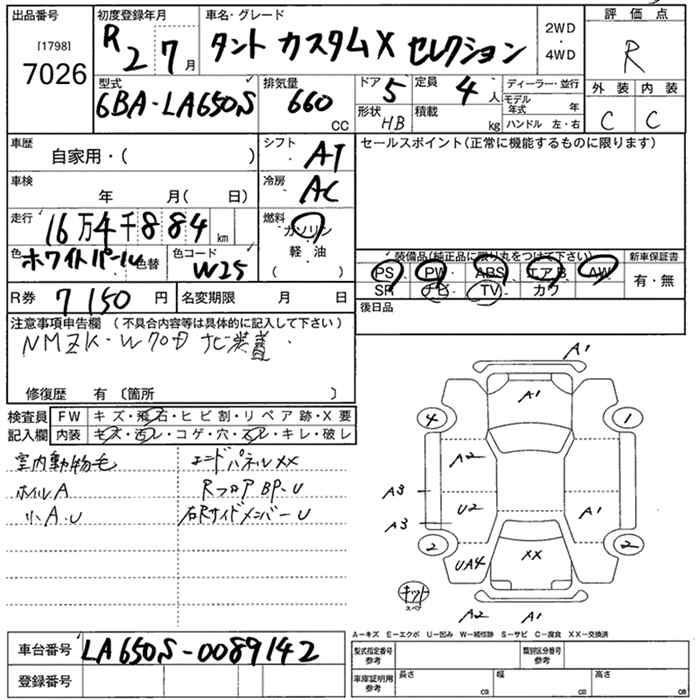 出品番号 初度登録年月 車名・グレード 2WD・4WD 評価点
[1798]
7026
R2 7月 タント カスタムX セレクション R
型式 排気量 ドア 5 定員 4人 ディーラー・並行 外装 内装
6BA-LA650S 660CC 形状 HB 積載 kg モデル年式 年 C C
ハンドル 左・右
車歴 自家用・( ) シフト AT セールスポイント(正常に機能するものに限ります)
車検 年 月( 日) 冷房 AC
走行 16万4千884km 燃料 ガソリン
色 ホワイトパール 色替 色コード W25 軽・油 ( )
装備品(純正品に限り丸をつけて下さい) 新車保証書
PS PW ABS エアB AW 有・無
SR ナビ TV カワ
R券 7150円 名変期限 月 日 後日品
注意事項申告欄 (不具合内容等は具体的に記入して下さい)
NMZK-W70D ナビ装着
修復歴 有 〔箇所 〕
検査員記入欄 FW キズ・飛石・ヒビ割・リペア跡・X要
内装 キズ・汚レ・コゲ・穴・スレ・キレ・破レ
室内動物毛 エンドパネルXX
ホイルA RフロアBP-U
小A.U 右RサイドメンバーU
A1
A1
4 1
A2
A3 U2 A1
A3
2 2
UA4 XX
キット
スペア
A2 A1
A-キズ E-エクボ U-凹み W-補修跡 S-サビ C-腐食 XX-交換済
車台番号 LA650S-0089142 型式指定番号 参考 類別区分番号 参考
登録番号 車庫証明用 参考 長さ cm 幅 cm 高さ cm